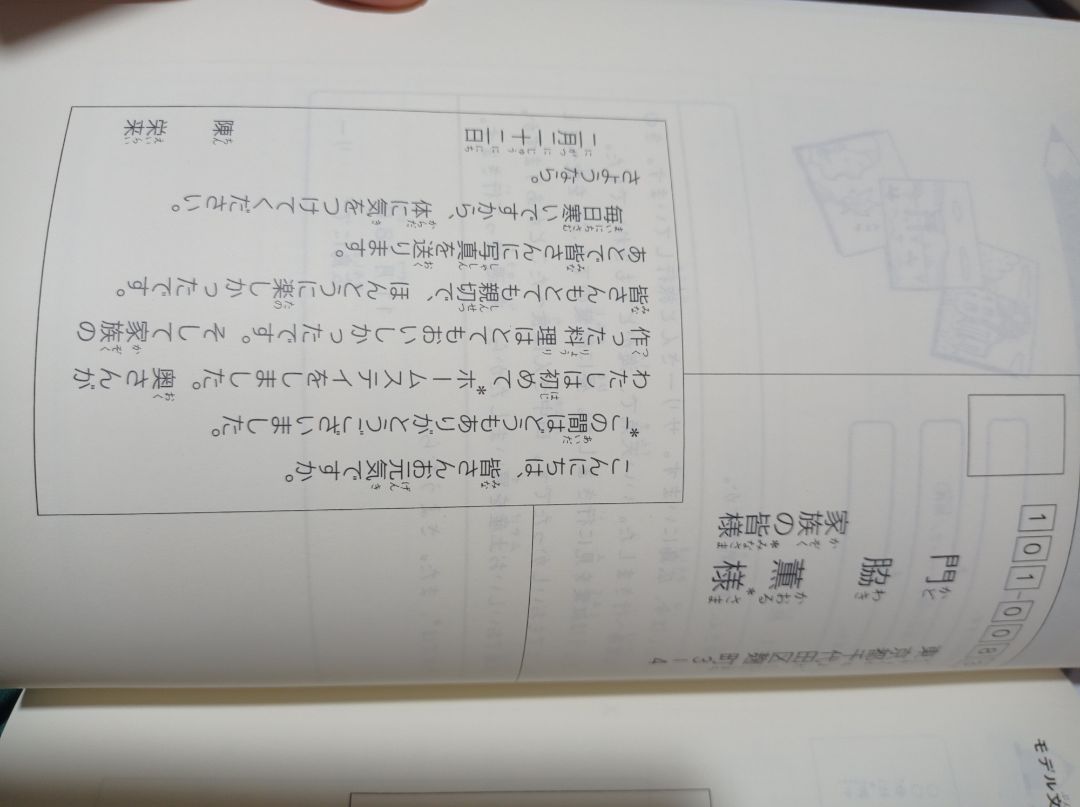 101-008
東京都千代田区麹町3-4
門脇 薫 様*
家族の*皆様
こんにちは、皆さんお元気ですか。
*この間はどうもありがとうございました。
わたしは初めて*ホームステイをしました。奥さんが
作った料理はとてもおいしかったです。そして家族の
皆さんもとても親切で、ほんとうに楽しかったです。
あとで皆さんに写真を送ります。
毎日寒いですから、体に気をつけてください。
さようなら。
二月二十二日
陳
栄来
モデル文